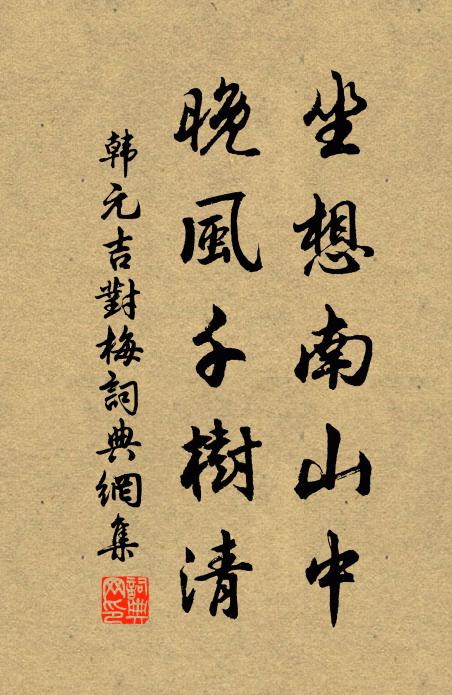 坐想南山中
晚風千樹清
韩元吉對梅詞典網集
詞典
网印